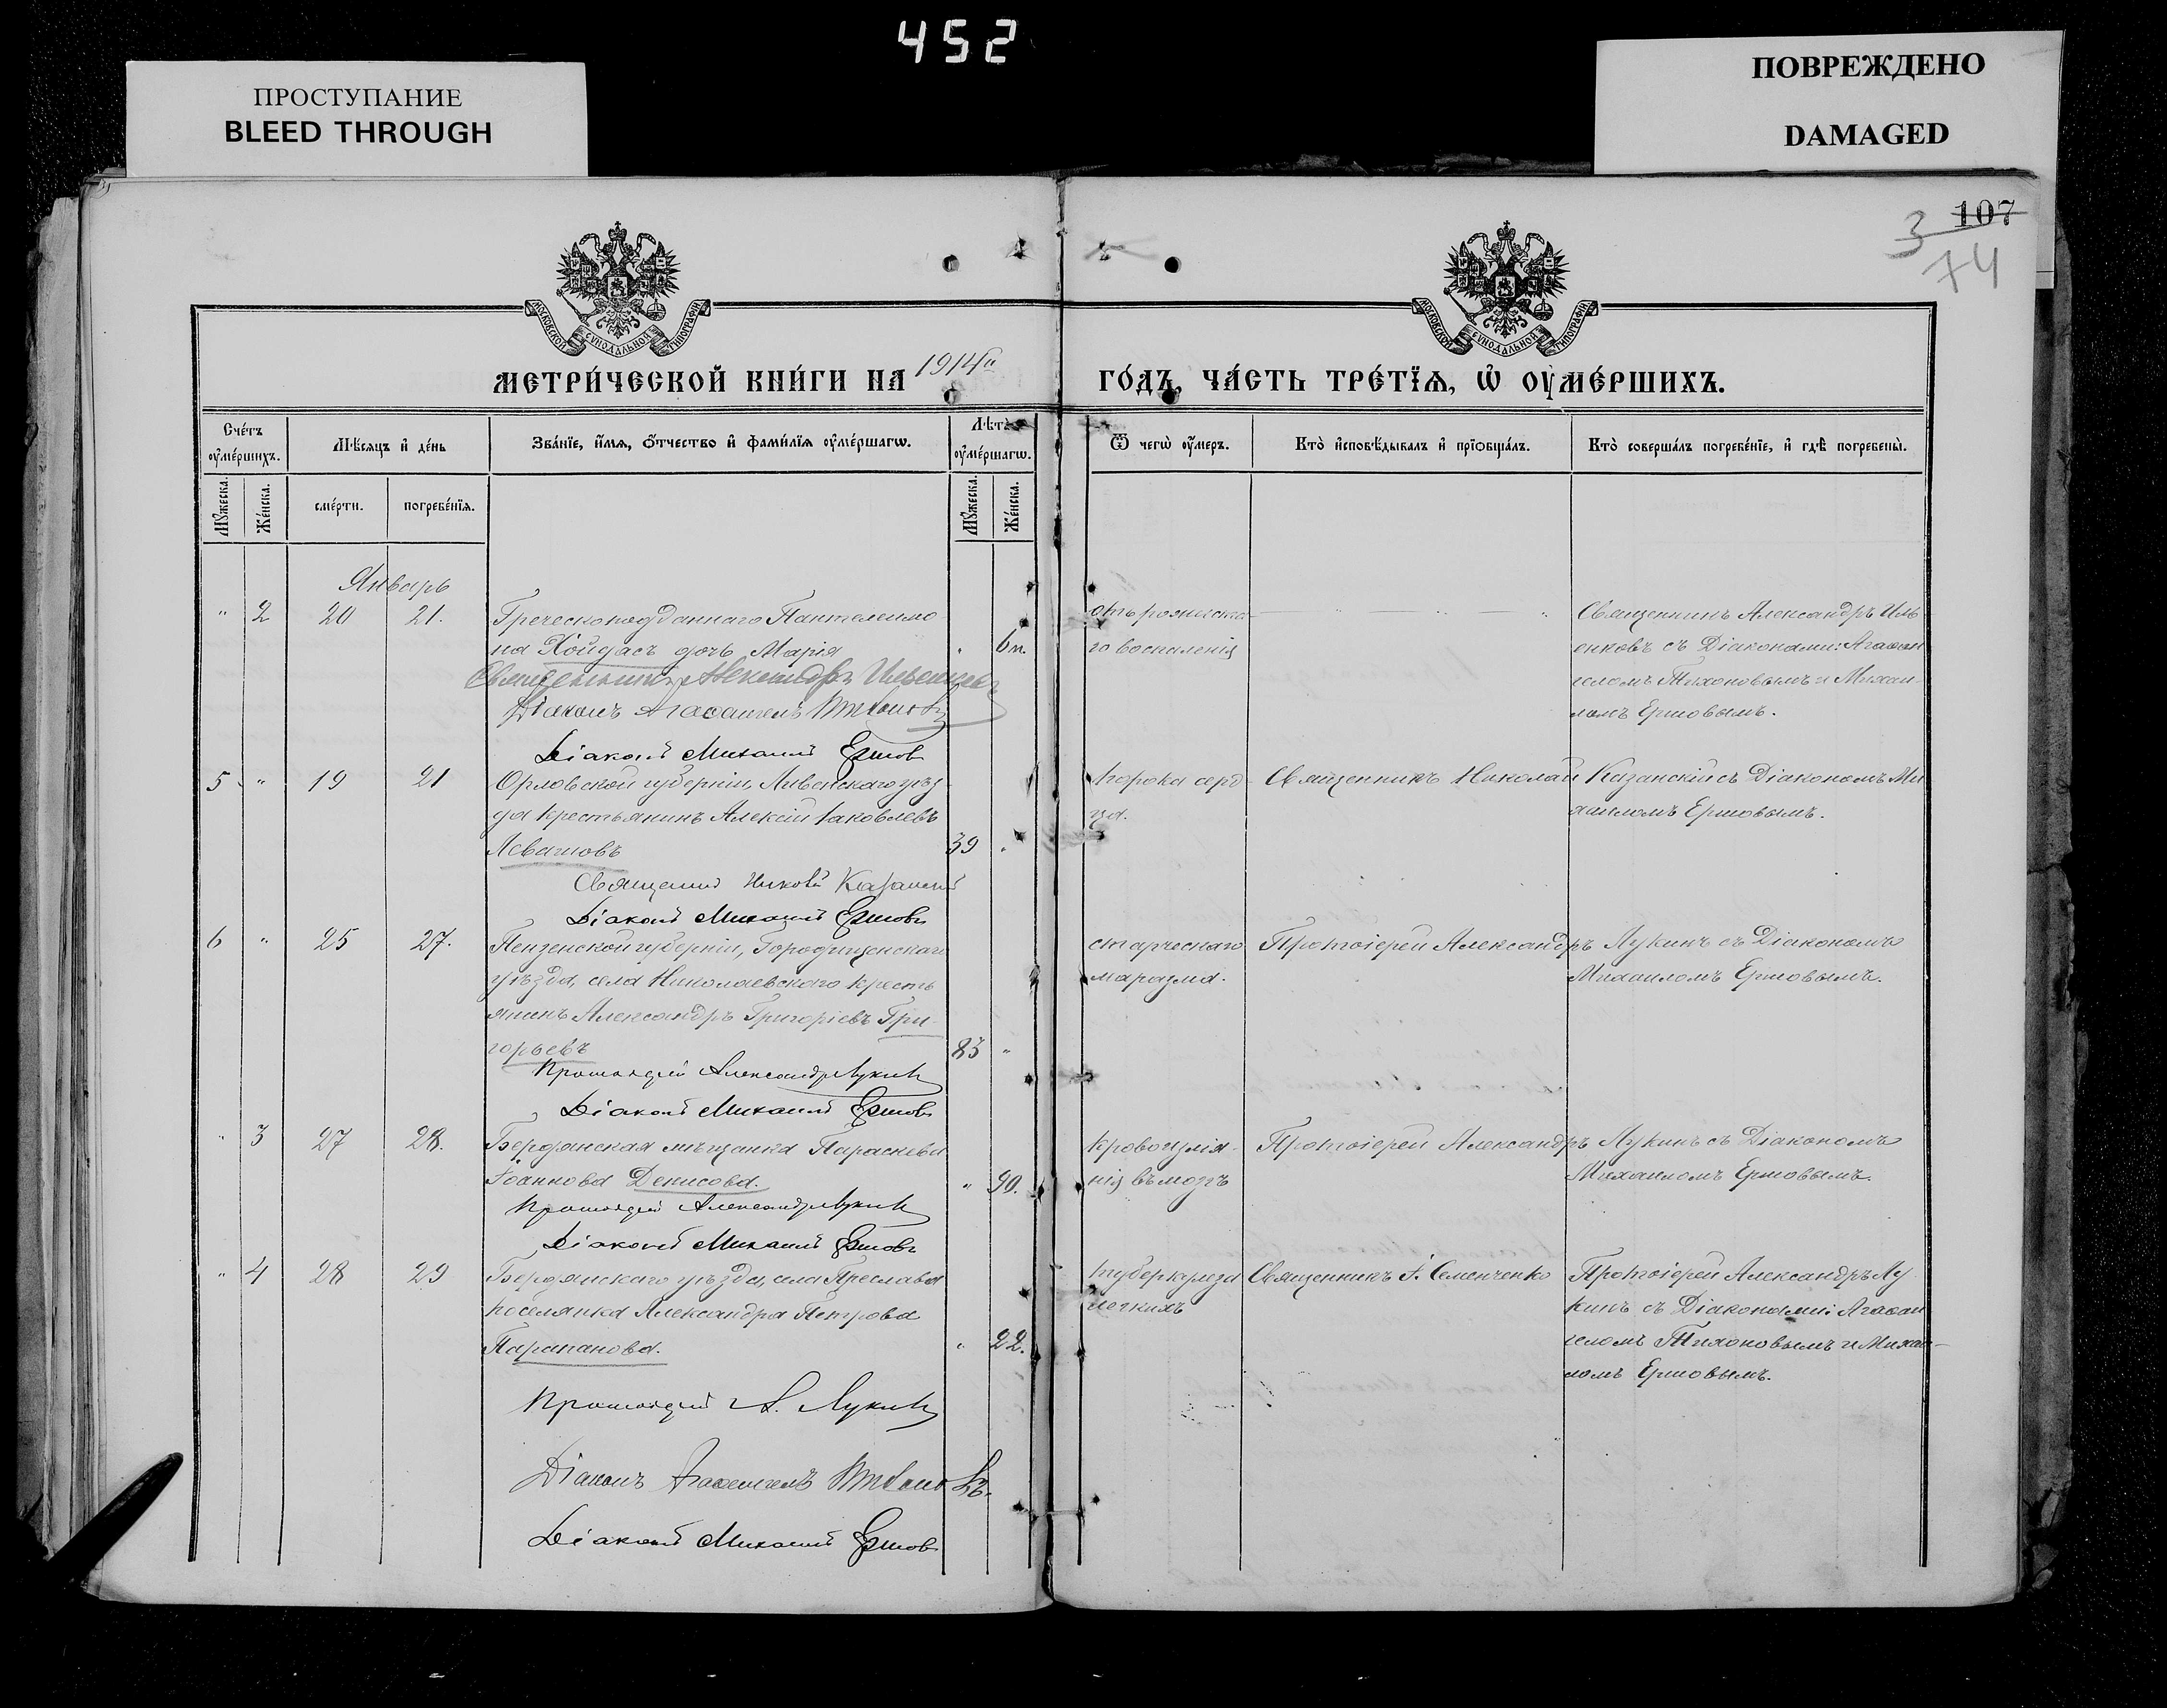 452
ПРОСТУПАНИЕ
BLEED THROUGH
ПОВРЕЖДЕНО
DAMAGED
107
3
74
МОСКОВСКОЙ СѴНОДАЛЬНОЙ ТИПОГРАФІИ
МОСКОВСКОЙ СѴНОДАЛЬНОЙ ТИПОГРАФІИ
МЕТРИ́ЧЕСКОЙ КНИ́ГИ НА 1914й ГО́ДЪ, ЧА́СТЬ ТРЕ́ТЇѦ, Ѡ҆ ОУ҆МЕ́РШИХЪ.
Сче́тъ оу҆ме́ршихъ.
Мѣ́сяцъ и҆ де́нь
Зва́нїе, и҆́мя, ѻ҆́тчество и҆ фами́лїя оу҆ме́ршагѡ.
Лѣ́та оу҆ме́ршагѡ.
Ѿ чегѡ̀ оу҆́меръ.
Кто̀ и҆сповѣ́дывалъ и҆ прїѻбща́лъ.
Кто̀ соверша́лъ погребе́нїе, и҆ гдѣ̀ погребены̀.
Мꙋ́жеска.
Же́нска.
сме́рти.
погребе́нїя.
Мꙋ́жеска.
Же́нска.
Январь
" 2 20 21. Греческоподданнаго Пантелеимо
на Хойдасъ дочь Марія " 6 м.
Священникъ Александръ Ильенковъ
Діаконъ Агаѳангелъ Тихоновъ
Діаконъ Михаилъ Ершовъ
го воспаленія
Священникъ Александръ Иль
енковъ съ Діаконами: Агаѳан
геломъ Тихоновымъ и Михаи
ломъ Ершовымъ.
5 " 19 21 Орловской губерніи, Ливенскаго уѣз
да крестьянинъ Алексій Іаковлевъ
Левашовъ 39 "
Священникъ Николай Казанскій
Діаконъ Михаилъ Ершовъ
Порока серд
ца.
Священникъ Николай Казанскій съ Діакономъ Ми
хаиломъ Ершовымъ.
6 " 25 27. Пензенской губерніи, Городищенскаго
уѣзда, села Николаевскаго кресть
янинъ Александръ Григоріевъ Гри
горьевъ 83 "
Протоіерей Александръ Лукинъ
Діаконъ Михаилъ Ершовъ
старческаго
маразма.
Протоіерей Александръ Лукинъ съ Діакономъ
Михаиломъ Ершовымъ.
" 3 27 28. Бердянская мѣщанка Параскева
Іоаннова Денисова. " 90.
Протоіерей Александръ Лукинъ
Діаконъ Михаилъ Ершовъ
Кровоизлія
нія въ мозгъ
Протоіерей Александръ Лукинъ съ Діакономъ
Михаиломъ Ершовымъ.
" 4 28 29 Бердянскаго уѣзда, села Преслава
поселянка Александра Петрова
Парапанова. " 22.
Протоіерей А. Лукинъ
Діаконъ Агаѳангелъ Тихоновъ.
Діаконъ Михаилъ Ершовъ
туберкулеза
легкихъ
Священникъ І. Семенченко
Протоіерей Александръ Лу
кинъ съ Діаконами: Агаѳан
геломъ Тихоновымъ и Михаи
ломъ Ершовымъ.